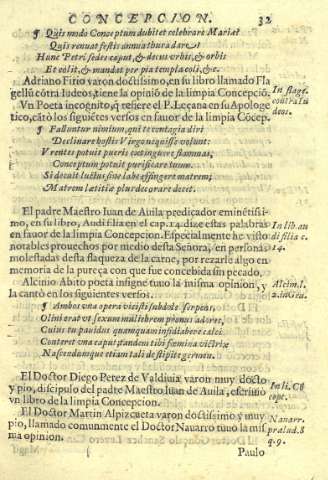 CONCEPCION. 32
¶ Quis modo Conceptum dubitet celebrare Mariæ?
Quis renuat festis annua thura dare?
Hunc Petri sedes caput, & decus orbis, & orbis
Et colit, & mandat per pia templa coli, &c.
Adriano Firio varon doctissimo, en su libro llamado Fla
gellũ cõtra Iudeos, tiene la opiniõ de la limpia Concepciõ.
In flage.
contra Iu
deos.
Vn Poeta incognito, q̃ refiere el P. Leçana en su Apologe
tico, cãtò los siguiẽtes versos en fauor de la limpia Cõcep.
¶ Falluntur nimium, qui te contagia diri
Declinare hostis Virgo nequisse volunt:
Ventres potuit pueris extinguere flammas,
Conceptum potuit purificare tuum.
Si decuit luctus sine labe effingere matrem,
Matrem lætitiæ plur decorare decet.
El padre Maestro Iuan de Auila predicador eminẽtissi-
mo, en su libro, Audi filia en el cap. 14. dize estas palabras
en fauor de la limpia Concepcion. Especialmente he visto
notables prouechos por medio desta Señora, en personas
molestadas desta flaqueza de la carne, por rezarle algo en
memoria de la pureça con que fue concebida sin pecado.
In lib. au
di filia c.
14.
Alcinio Abito poeta insigne tuuo la misma opinion, y
la cantò en los siguientes versos.
Alcim. l.
2. in Gen.
¶ Ambos vna opera vicisti subdole serpens,
Olim erat vt sexum muliebrem pronus adores,
Cuius tu pauidus quamquam insidiabere calci
Conteret vna caput, tandem tibi fœmina victrix
Nascendumque etiam tali de stipite germen.
El Doctor Diego Perez de Valdiuia varon muy docto
y pio, discipulo del padre Maestro Iuan de Auila, escriuio
vn libro de la limpia Concepcion.
In li. Cõ
cept.
El Doctor Martin Alpizcueta varon doctissimo y muy
pio, llamado comunmente el Doctor Nauarro tuuo la mis
ma opinion.
Nauarr.
prælud. 8
q. 9.
Paulo